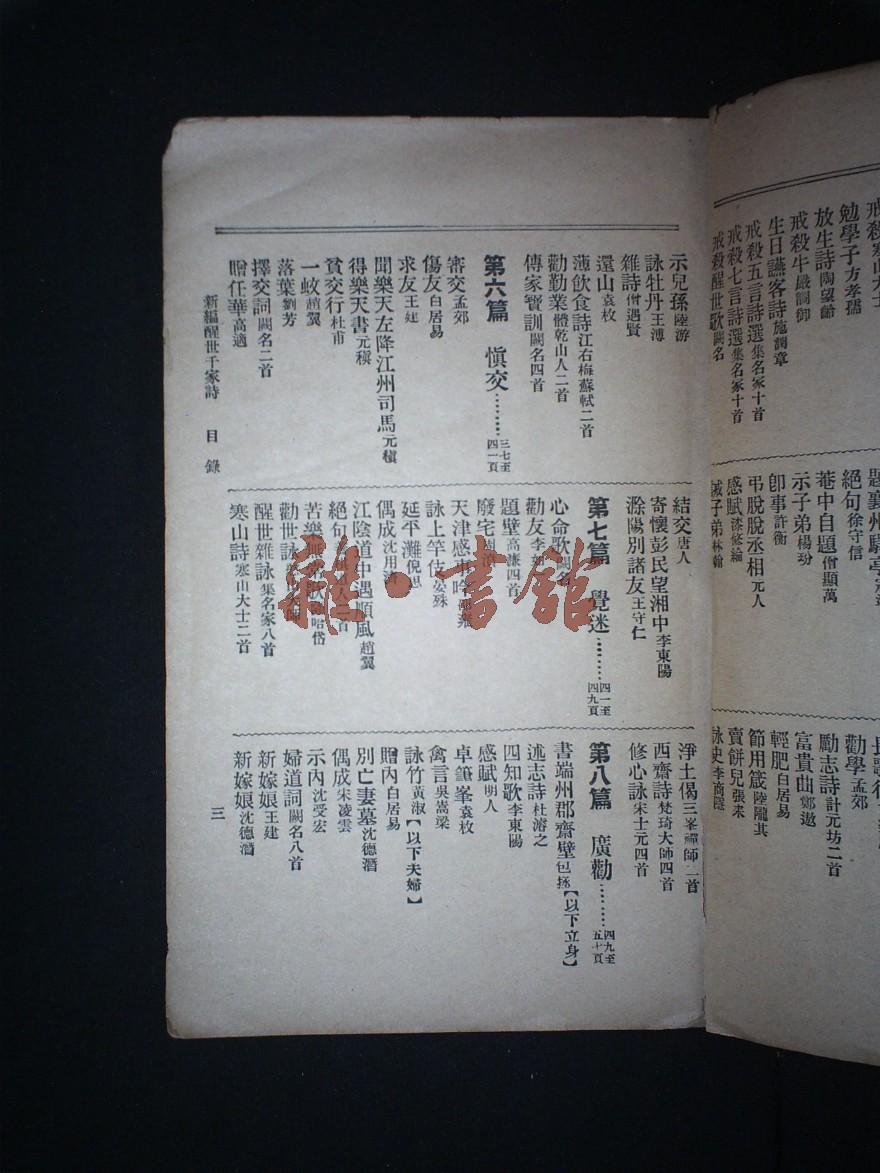 戒殺寒山大士
勉學子方孝孺
放生詩陶望齡
戒殺牛嚴調御
生日讌客詩施潤章
戒殺五言詩選集名家十首
戒殺七言詩選集名家十首
戒殺醒世歌闕名
絕句徐守信
菴中自題僧顯萬
示子弟楊玢
卽事許衡
弔脫脫丞相元人
感賦漆修綸
誡子弟林翰
勸學孟郊
勵志詩計元坊二首
富貴曲鄭遨
輕肥白居易
節用箴陸隴其
賣餅兒張耒
詠史李商隱
示兒孫陸游
詠牡丹王溥
雜詩僧遇賢
還山袁枚
薄飲食詩江右梅蘇軾二首
勸勤業體乾山人二首
傳家寶訓闕名四首
第六篇 愼交………三七至四一頁
審交孟郊
傷友白居易
求友王建
聞樂天左降江州司馬元稹
得樂天書元稹
貧交行杜甫
一蚊趙翼
落葉劉芳
擇交詞闕名二首
贈任華高適
結交唐人
寄懷彭民望湘中李東陽
滁陽別諸友王守仁
第七篇 覺迷………四一至四九頁
心命歌闕名
勸友李
題壁高謙四首
廢宅
天津感事吟
詠上竿伎晏殊
延平灘倪
偶成沈用濟
江陰道中遇順風趙翼
絕句
苦樂
勸世詠
醒世雜詠集名家八首
寒山詩寒山大士二首
淨土偈三峯禪師一首
西齋詩梵琦大師四首
修心詠宋士元四首
第八篇 廣勸………四九至五十頁
書端州郡齋壁包拯【以下立身】
述志詩杜濬之
四知歌李東陽
感賦明人
卓筆峯袁枚
禽言吳嵩梁
詠竹黃淑【以下夫婦】
贈內白居易
別亡妻墓沈德潛
偶成宋凌雲
示內沈受宏
婦道詞闕名八首
新嫁娘王建
新嫁娘沈德潛
新編醒世千家詩 目錄
三
雜·書館